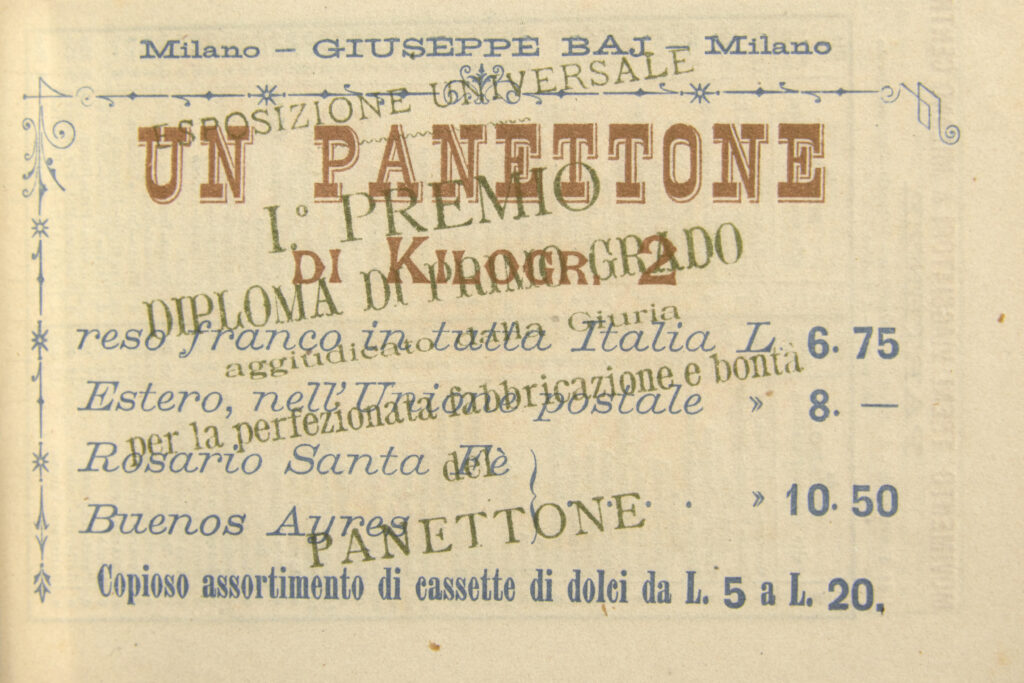 Milano - GIUSEPPE BAJ - Milano
ESPOSIZIONE UNIVERSALE
UN PANETTONE
I.° PREMIO
DI KILOGR. 2
DIPLOMA DI PRIMO GRADO
reso franco in tutta Italia L. 6. 75
aggiudicato dalla Giuria
Estero, nell'Unione postale » 8. —
per la perfezionata fabbricazione e bontà
Rosario Santa Fè
del
Buenos Ayres . . . . » 10. 50
PANETTONE
Copioso assortimento di cassette di dolci da L. 5 a L. 20.